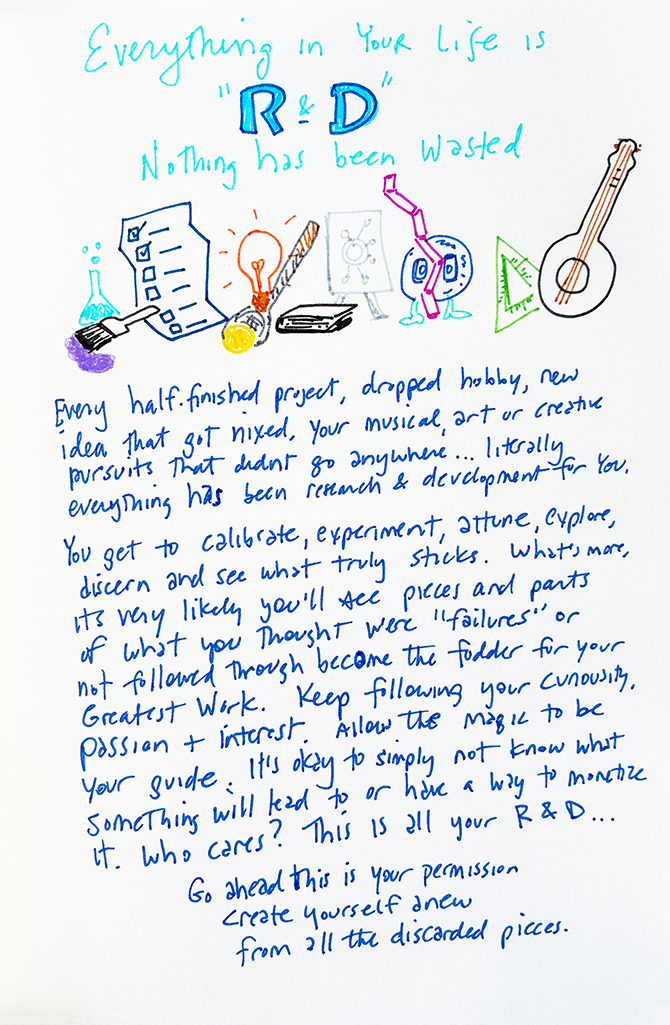 Everything in Your Life is
"R & D"
Nothing has been wasted
Every half-finished project, dropped hobby, new
idea that got nixed, your musical, art or creative
pursuits that didnt go anywhere... literally
everything has been research & development for you.
You get to calibrate, experiment, attune, explore,
discern and see what truly sticks. What's more,
its very likely you'll see pieces and parts
of what you thought were "failures" or
not followed through become the fodder for your
Greatest Work. Keep following your curiousity,
passion + interest. Allow the magic to be
your guide. It's okay to simply not know what
something will lead to or have a way to monetize
it. Who cares? This is all your R & D...
Go ahead this is your permission
create yourself anew
from all the discarded pieces.